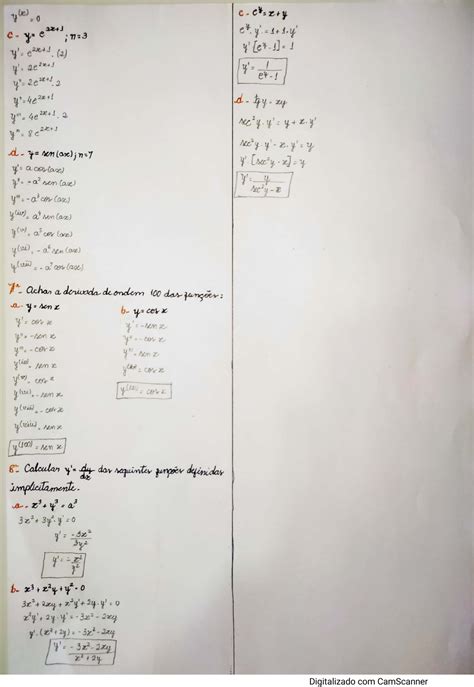 y⁽ˣ⁾ = 0
c - y = e²ˣ⁺¹ ; n=3
y' = e²ˣ⁺¹ · (2)
y' = 2e²ˣ⁺¹
y" = 2e²ˣ⁺¹ · 2
y" = 4e²ˣ⁺¹
y''' = 4e²ˣ⁺¹ · 2
y''' = 8e²ˣ⁺¹
d - y = sen(ax) ; n=7
y' = a cos(ax)
y" = -a² sen(ax)
y''' = -a³ cos(ax)
y⁽ⁱᵛ⁾ = a⁴ sen(ax)
y⁽ᵛ⁾ = a⁵ cos(ax)
y⁽ᵛⁱ⁾ = -a⁶ sen(ax)
y⁽ᵛⁱⁱ⁾ = -a⁷ cos(ax)
7ª Achar a derivada de ordem 100 das funções:
a - y = sen x
y' = cos x
y" = -sen x
y''' = -cos x
y⁽ⁱᵛ⁾ = sen x
y⁽ᵛ⁾ = cos x
y⁽ᵛⁱ⁾ = -sen x
y⁽ᵛⁱⁱ⁾ = -cos x
y⁽ᵛⁱⁱⁱ⁾ = sen x
y⁽¹⁰⁰⁾ = sen x
b - y = cos x
y' = -sen x
y" = -cos x
y''' = sen x
y⁽ⁱᵛ⁾ = cos x
y⁽¹⁰⁰⁾ = cos x
8ª Calcular y' = dy/dx das seguintes funções definidas
implicitamente.
a - x³ + y³ = a³
3x² + 3y² · y' = 0
y' = -3x²/3y²
y' = -x²/y²
b - x³ + x²y + y² = 0
3x² + 2xy + x²y' + 2y · y' = 0
x²y' + 2y · y' = -3x² - 2xy
y' · (x² + 2y) = -3x² - 2xy
y' = -3x² - 2xy / x² + 2y
c - eʸ = x + y
eʸ · y' = 1 + 1 · y'
y' [eʸ - 1] = 1
y' = 1/eʸ - 1
d - tgy = xy
sec²y · y' = y + x · y'
sec²y · y' - x · y' = y
y' · [sec²y - x] = y
y' = y/sec²y - x
Digitalizado com CamScanner